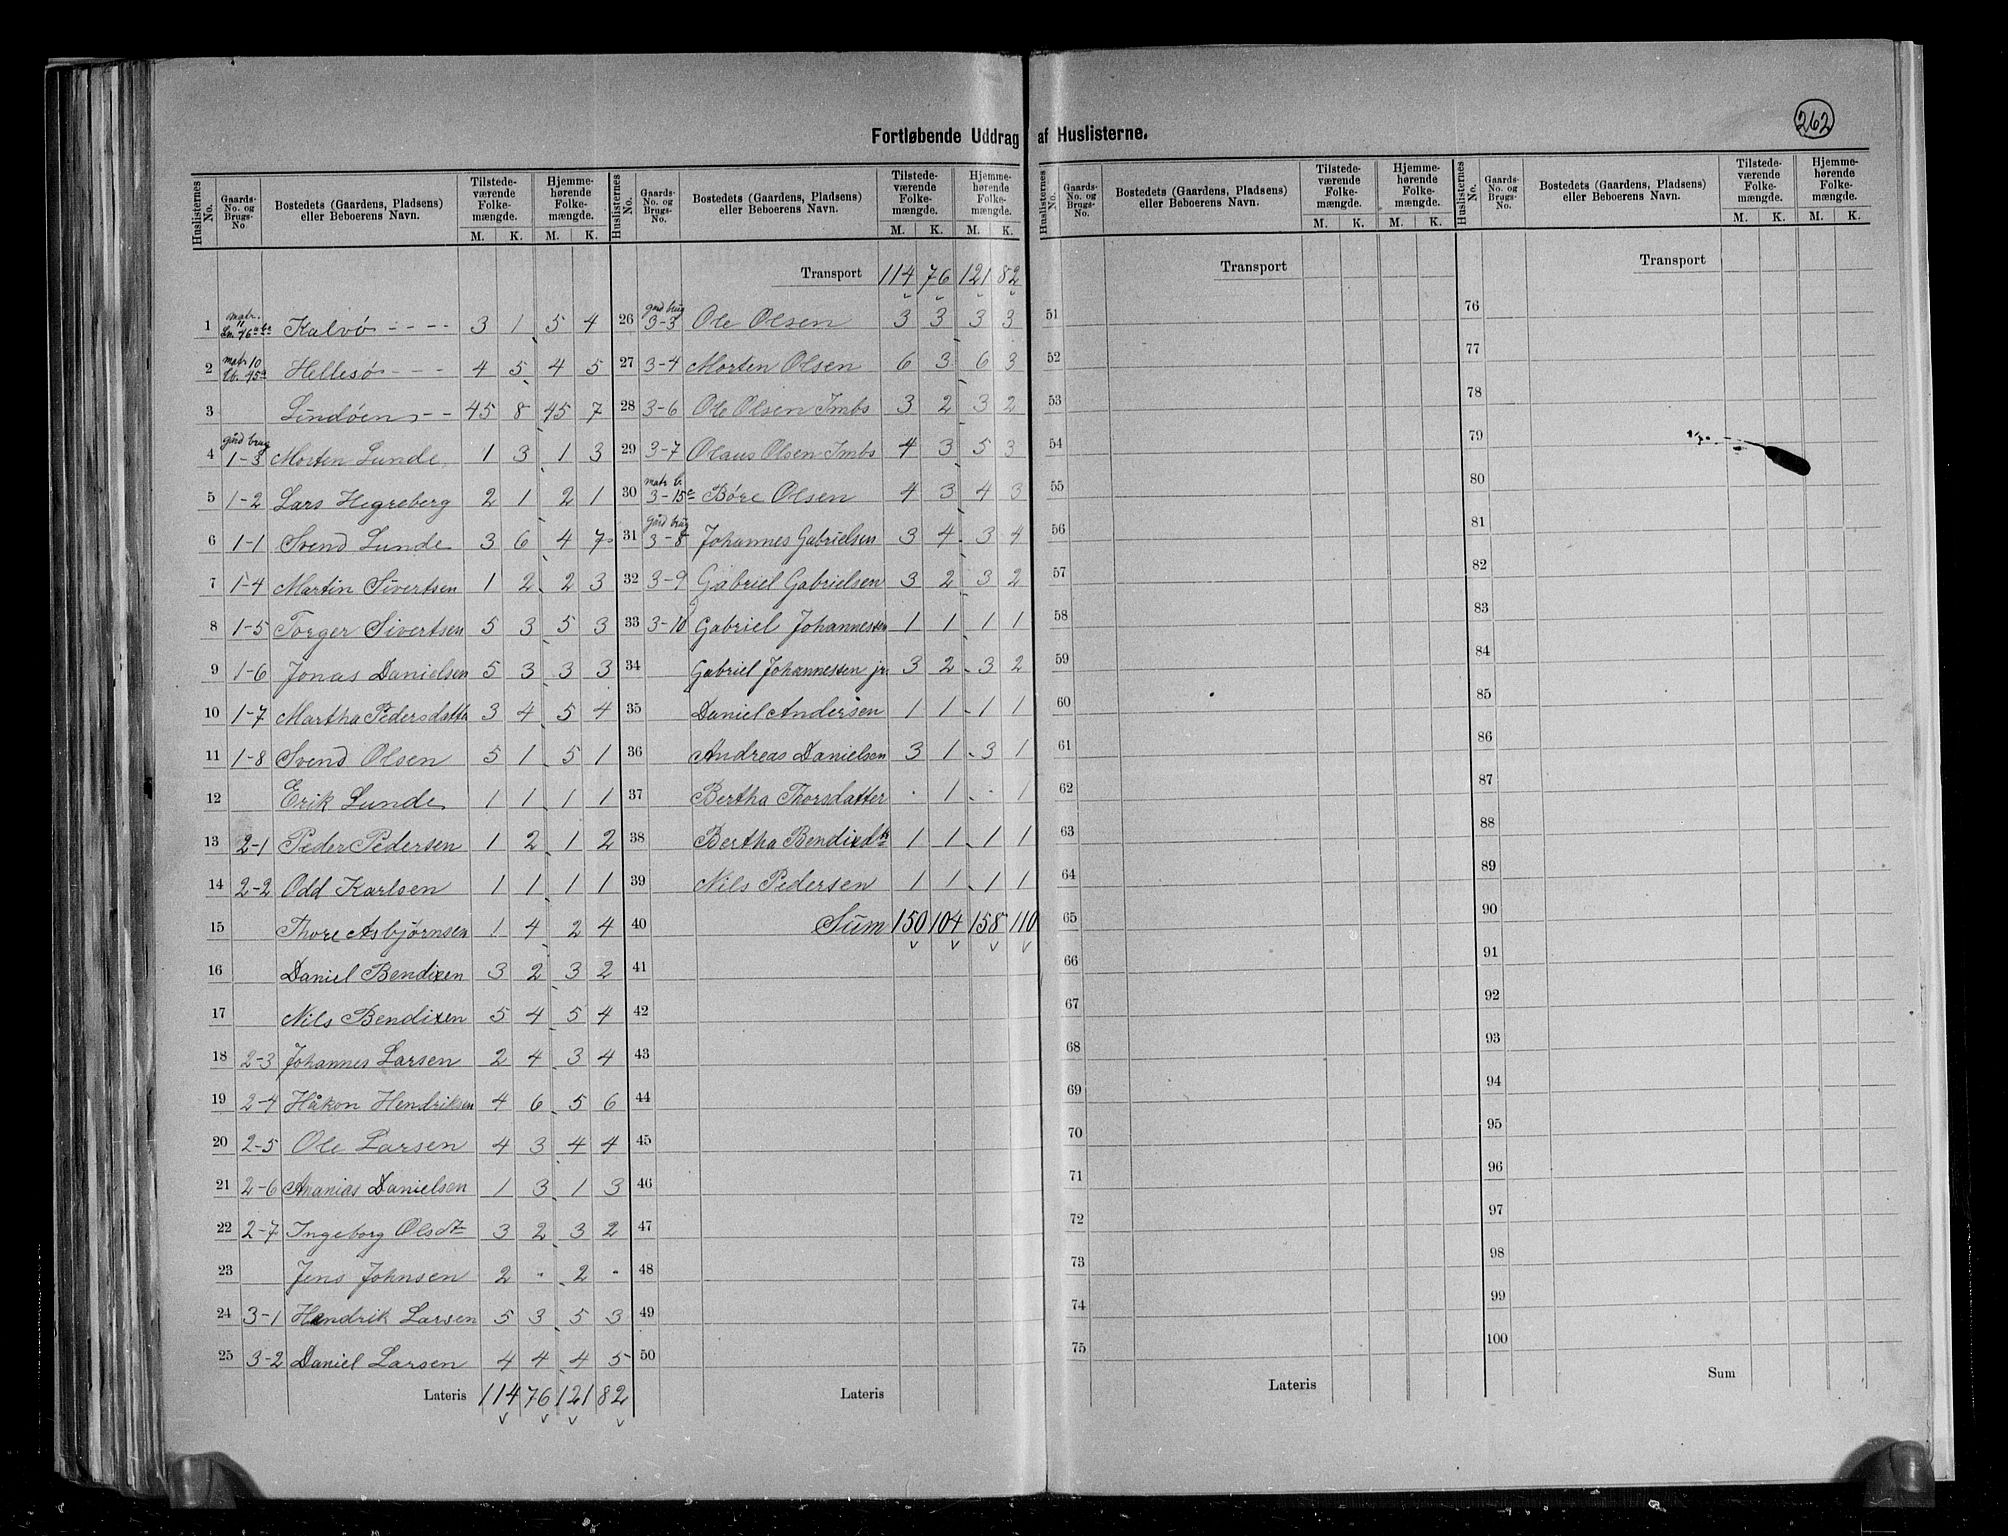 262
Fortløbende Uddrag af Huslisterne.
Huslisternes No. | Gaards-No. og Brugs-No. | Bostedets (Gaardens, Pladsens) eller Beboerens Navn. | Tilstedeværende Folkemængde. M. K. | Hjemmehørende Folkemængde. M. K.
1 Kalvø - - - - 3 1 5 4
2 matr 10 Hellesø - - - 4 5 4 5
3 Lindøen - - 45 8 45 7
4 gård brug 1-3 Morten Lunde 1 3 1 3
5 1-2 Lars Hegreberg 2 1 2 1
6 1-1 Svend Lunde 3 6 4 7
7 1-4 Martin Sivertsen 1 2 2 3
8 1-5 Torger Sivertsen 5 3 5 3
9 1-6 Jonas Danielsen 5 3 3 3
10 1-7 Martha Pedersdatte 3 4 5 4
11 1-8 Svend Olsen 5 1 5 1
12 Erik Lunde 1 1 1 1
13 2-1 Peder Pedersen 1 2 1 2
14 2-2 Odd Karlsen 1 1 1 1
15 Thore Asbjørnsen 1 4 2 4
16 Daniel Bendixen 3 2 3 2
17 Nils Bendixen 5 4 5 4
18 2-3 Johannes Larsen 2 4 3 4
19 2-4 Håkon Hendriksen 4 6 5 6
20 2-5 Ole Larsen 4 3 4 4
21 2-6 Ananias Danielsen 1 3 1 3
22 2-7 Ingeborg Olsdt 3 2 3 2
23 Jens Johnsen 2 - 2 -
24 3-1 Hendrik Larsen 5 3 5 3
25 3-2 Daniel Larsen 4 4 4 5
Lateris 114 76 121 82
Huslisternes No. | Gaards-No. og Brugs-No. | Bostedets (Gaardens, Pladsens) eller Beboerens Navn. | Tilstedeværende Folkemængde. M. K. | Hjemmehørende Folkemængde. M. K.
Transport 114 76 121 82
26 gård brug 3-3 Ole Olsen 3 3 3 3
27 3-4 Morten Olsen 6 3 6 3
28 3-6 Ole Olsen Imbs 3 2 3 2
29 3-7 Olaus Olsen Imbs 4 3 5 3
30 3-15 Børe Olsen 4 3 4 3
31 gård brug 3-8 Johannes Gabrielsen 3 4 3 4
32 3-9 Gabriel Gabrielsen 3 2 3 2
33 3-10 Gabriel Johannessen 1 1 1 1
34 Gabriel Johannessen jr. 3 2 3 2
35 Daniel Andersen 1 1 1 1
36 Andreas Danielsen 3 1 3 1
37 Bertha Thorsdatter - 1 - 1
38 Bertha Bendixdt 1 1 1 1
39 Nils Pedersen 1 1 1 1
40 Sum 150 104 158 110
41
42
43
44
45
46
47
48
49
50
Lateris
Huslisternes No. | Gaards-No. og Brugs-No. | Bostedets (Gaardens, Pladsens) eller Beboerens Navn. | Tilstedeværende Folkemængde. M. K. | Hjemmehørende Folkemængde. M. K.
Transport
51
52
53
54
55
56
57
58
59
60
61
62
63
64
65
66
67
68
69
70
71
72
73
74
75
Lateris
Huslisternes No. | Gaards-No. og Brugs-No. | Bostedets (Gaardens, Pladsens) eller Beboerens Navn. | Tilstedeværende Folkemængde. M. K. | Hjemmehørende Folkemængde. M. K.
Transport
76
77
78
79
80
81
82
83
84
85
86
87
88
89
90
91
92
93
94
95
96
97
98
99
100
Sum